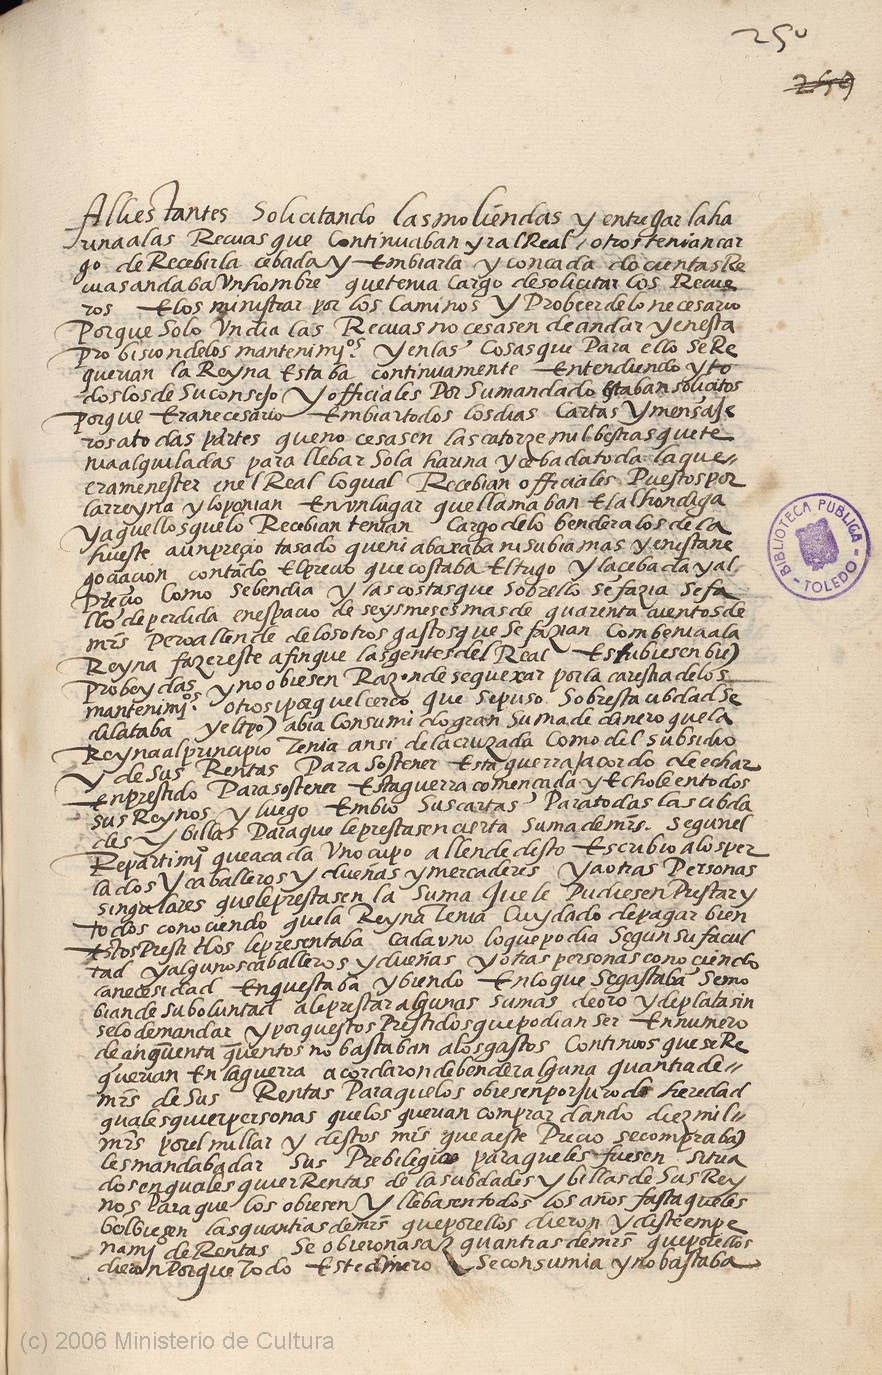 250
259
Alli estantes Solicitando las moliendas y entregar la ha
rina a las Recuas que Continuaban yr al Real / otros tenian car
go de Recebir la cebada y Embiarla y con cada docientas Re
cuas andaba Un hombre que tenia Cargo de solicitar los Recue
ros E los ministrar por los Caminos y Probeer de lo necesario
Porque Solo Un dia las Recuas no cesasen de andar y en esta
probision de los mantenimjos y en las Cosas que Para ello Se Re
querian la Reyna Estaba continuamente Entendiendo y to
dos los de Su consejo y officiales Por Su mandado Estaban solicitos
porque Era necesario Embiar todos los dias Cartas y mensaje
ros a todas partes que no cesasen las catorze mil bestias que te
nia alquiladas para llebar Sola harina y cebada toda la que
era menester en el Real lo qual Recebian officiales Puestos por
la rreyna y lo ponian En un lugar que llamaban El alhondiga
y aquellos que lo Recebian tenian Cargo de lo bender a los de la
hueste a un precio tasado que ni abaxaba ni subia mas y en esta ne
gociacion contado El precio que costaba El trigo y la cebada y al
Precio Como Se bendia y las costas que Sobrello Se fazia Se fa
llo de perdida en espacio de seys meses mas de quarenta cuentos de
mrs Pero allende de los otros gastos que Se fazian Combenia a la
Reyna fazer este a fin que las gentes del Real Estubiesen bien
Probeydas y no obiesen Razon de se quexar por la carestia de los
mantenimjos otrosi porque el cerco que Se puso Sobre esta cibdad Se
dilataba y el tpo abia Consumido gran Suma de dinero que la
Reyna al principio Tenia ansi de la cruzada Como del subsidio
y de Sus Rentas Para Sostener Esta guerra acordo de echar
Enprestido Para sostener Esta guerra comencada y Echole en todos
sus Reynos y luego Embio Sus cartas Para todas las cibda
des y billas Para que le prestasen cierta Suma de mrs. Segun el
Repartimjo que a cada Uno cupo allende desto Escribio a los per
lados y caballeros y dueñas y mercaderes y a otras Personas
singulares que le prestasen la Suma que le Pudiesen Prestar y
todos conociendo que la Reyna Tenia Cuydado de pagar bien
Estos Prestidos le presentaba Cada uno lo que podia Segun Su facul
tad y algunos caballeros y dueñas y otras personas conociendo
la necesidad En que estaba y biendo En lo que Se gastaba Se mo
bian de Su boluntad a le prestar algunas Sumas de oro y de plata sin
selo demandar y porque estos Prestidos que podian Ser En numero
de cinquenta quentos no bastaban a los gastos Continos que se Re
querian En la guerra acordaron de bender alguna quantia de
mrs de Sus Rentas Para que los obiesen por juro de heredad
quales quier personas que los querian comprar dando diez mil
mrs por el millar y destos mrs que a este Precio se compraban
les mandaba dar Sus Prebilegios para que les fuesen Situa
dos en quales quier Rentas de las cibdades y billas de Sus Rey
nos Para que los obiesen y llebasen todos los años fasta que les
bolbiesen las quantias de mrs que por ellos dieron y deste empe
namjo de Rentas Se obieron asaz quantias de mrs que por ellos
dieron Porque Todo Este dinero Se consumia y no bastaba
BIBLIOTECA PÚBLICA
- TOLEDO -
(c) 2006 Ministerio de Cultura